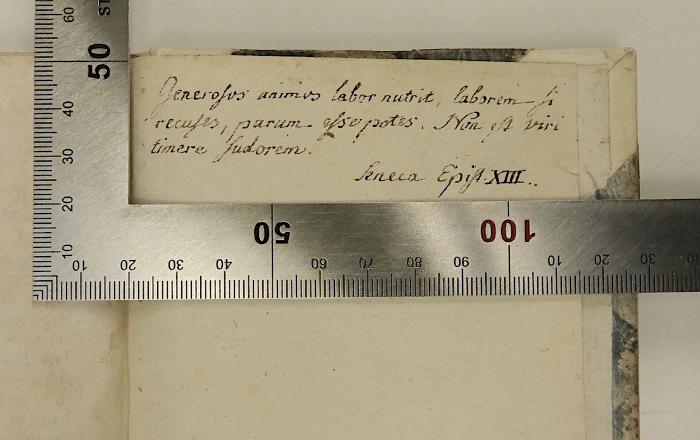 Generosus animus labor nutrit, laborem si
recuses, parum esse potes. Non est viri
timere sudorem.
Seneca Epist. XIII..
60
ST
50
40
30
20
10
10 20 30 40 50 60 70 80 90 100 10 20 30 40